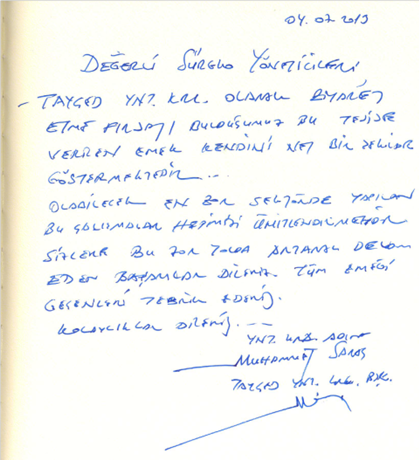 04.07.2019
DEĞERLİ SÜRENO YÖNETİCİLERİ
- TAYGED YNT. KRL. OLARAK ZİYARET
ETME FIRSATI BULDUĞUMUZ BU TESİSDE
VERİLEN EMEK KENDİNİ NET BİR ŞEKİLDE
GÖSTERMEKTEDİR...
OLABİLECEK EN ZOR SEKTÖRDE YAPILAN
BU ÇALIŞMALAR HEPİMİZİ ÜMİTLENDİRMEKTEDİR
SİZLERE BU ZOR YOLDA ARTARAK DEVAM
EDEN BAŞARILAR DİLERİZ TÜM EMEĞİ
GEÇENLERİ TEBRİK EDERİZ.
KOLAYLIKLAR DİLERİZ. ---
YNT. KRL. ADINA
MUHAMMET SARAÇ
TAYGED YNT. KRL. BŞK.